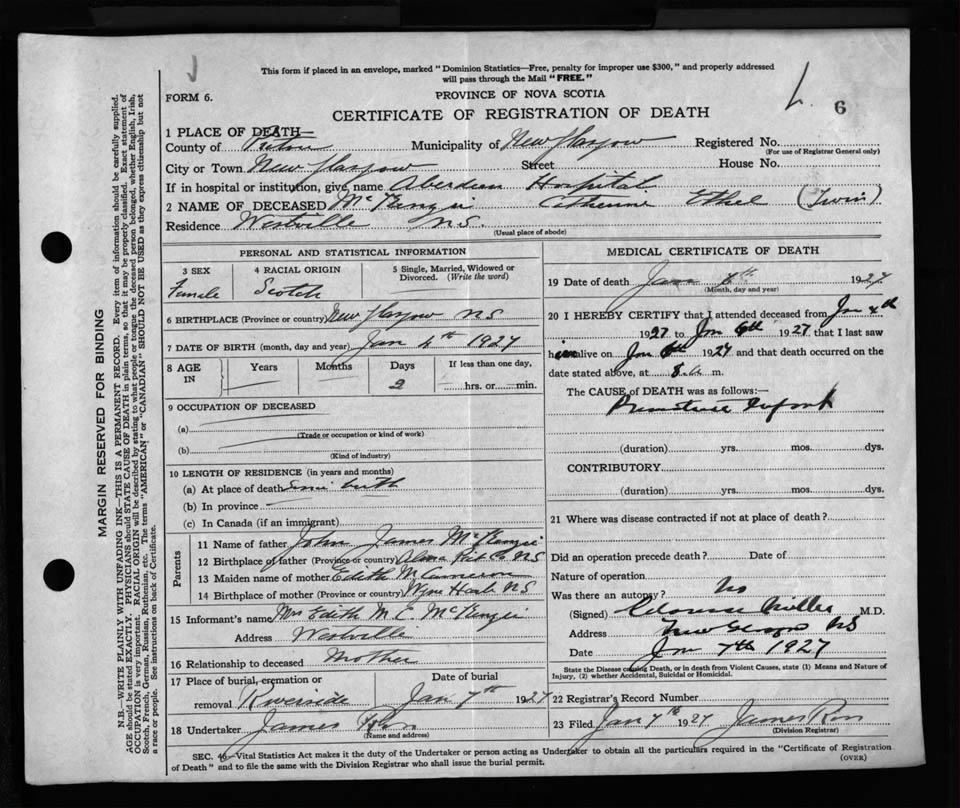 This form if placed in an envelope, marked "Dominion Statistics—Free, penalty for improper use $300," and properly addressed
will pass through the Mail "FREE."
FORM 6.
PROVINCE OF NOVA SCOTIA
CERTIFICATE OF REGISTRATION OF DEATH
6
1 PLACE OF DEATH—
County of Pictou Municipality of New Glasgow Registered No.
(For use of Registrar General only)
City or Town New Glasgow Street House No.
If in hospital or institution, give name Aberdeen Hospital
2 NAME OF DECEASED McKenzie Catherine Ethel (Twin)
Residence Westville N.S.
(Usual place of abode)
PERSONAL AND STATISTICAL INFORMATION
3 SEX
Female
4 RACIAL ORIGIN
Scotch
5 Single, Married, Widowed or Divorced. (Write the word)
6 BIRTHPLACE (Province or country) New Glasgow NS
7 DATE OF BIRTH (month, day and year) Jan 4th 1927
8 AGE IN
Years
Months
Days
2
If less than one day,
hrs. or min.
9 OCCUPATION OF DECEASED
(a)
(Trade or occupation or kind of work)
(b)
(Kind of industry)
10 LENGTH OF RESIDENCE (in years and months)
(a) At place of death Since birth
(b) In province
(c) In Canada (if an immigrant)
Parents
11 Name of father John James McKenzie
12 Birthplace of father (Province or country) Alma Pict Co NS
13 Maiden name of mother Edith M Cameron
14 Birthplace of mother (Province or country) Wine Harb NS
15 Informant's name Mrs Edith M. E. McKenzie
Address Westville
16 Relationship to deceased Mother
17 Place of burial, cremation or removal Riverside
Date of burial Jan 7th 1927
18 Undertaker James Ross
(Name and address)
MEDICAL CERTIFICATE OF DEATH
19 Date of death Jan 6th 1927
(Month, day and year)
20 I HEREBY CERTIFY that I attended deceased from Jan 4th
1927 to Jan 6th 1927 that I last saw
him alive on Jan 6th 1927 and that death occurred on
date stated above, at 8 a. m.
The CAUSE OF DEATH was as follows:—
Premature Infant
(duration) yrs. mos. dys.
CONTRIBUTORY
(duration) yrs. mos. dys.
21 Where was disease contracted if not at place of death?
Did an operation precede death? Date of
Nature of operation
Was there an autopsy? No
(Signed) Clarence Miller M.D.
Address New Glasgow NS
Date Jan 7th 1927
State the Disease causing Death, or in death from Violent Causes, state (1) Means and Nature of
Injury, (2) whether Accidental, Suicidal or Homicidal.
22 Registrar's Record Number
23 Filed Jan 7th 1927 James Ross
(Division Registrar)
SEC. 46—Vital Statistics Act makes it the duty of the Undertaker or person acting as Undertaker to obtain all the particulars required in the "Certificate of Registration
of Death" and to file the same with the Division Registrar who shall issue the burial permit.
(OVER)
MARGIN RESERVED FOR BINDING
N.B.—WRITE PLAINLY WITH UNFADING INK—THIS IS A PERMANENT RECORD. Every item of information should be carefully supplied.
AGE should be stated EXACTLY. PHYSICIANS should STATE CAUSE OF DEATH in plain terms, so that it may be properly classified. Exact statement of
OCCUPATION is very important. RACIAL ORIGIN will be described by stating to what people or tongue the deceased person belonged, whether English, Irish,
Scotch, French, German, Russian, Ruthenian, etc. The terms "AMERICAN" or "CANADIAN" SHOULD NOT BE USED as they express citizenship but not
a race or people. See instructions on back of Certificate.